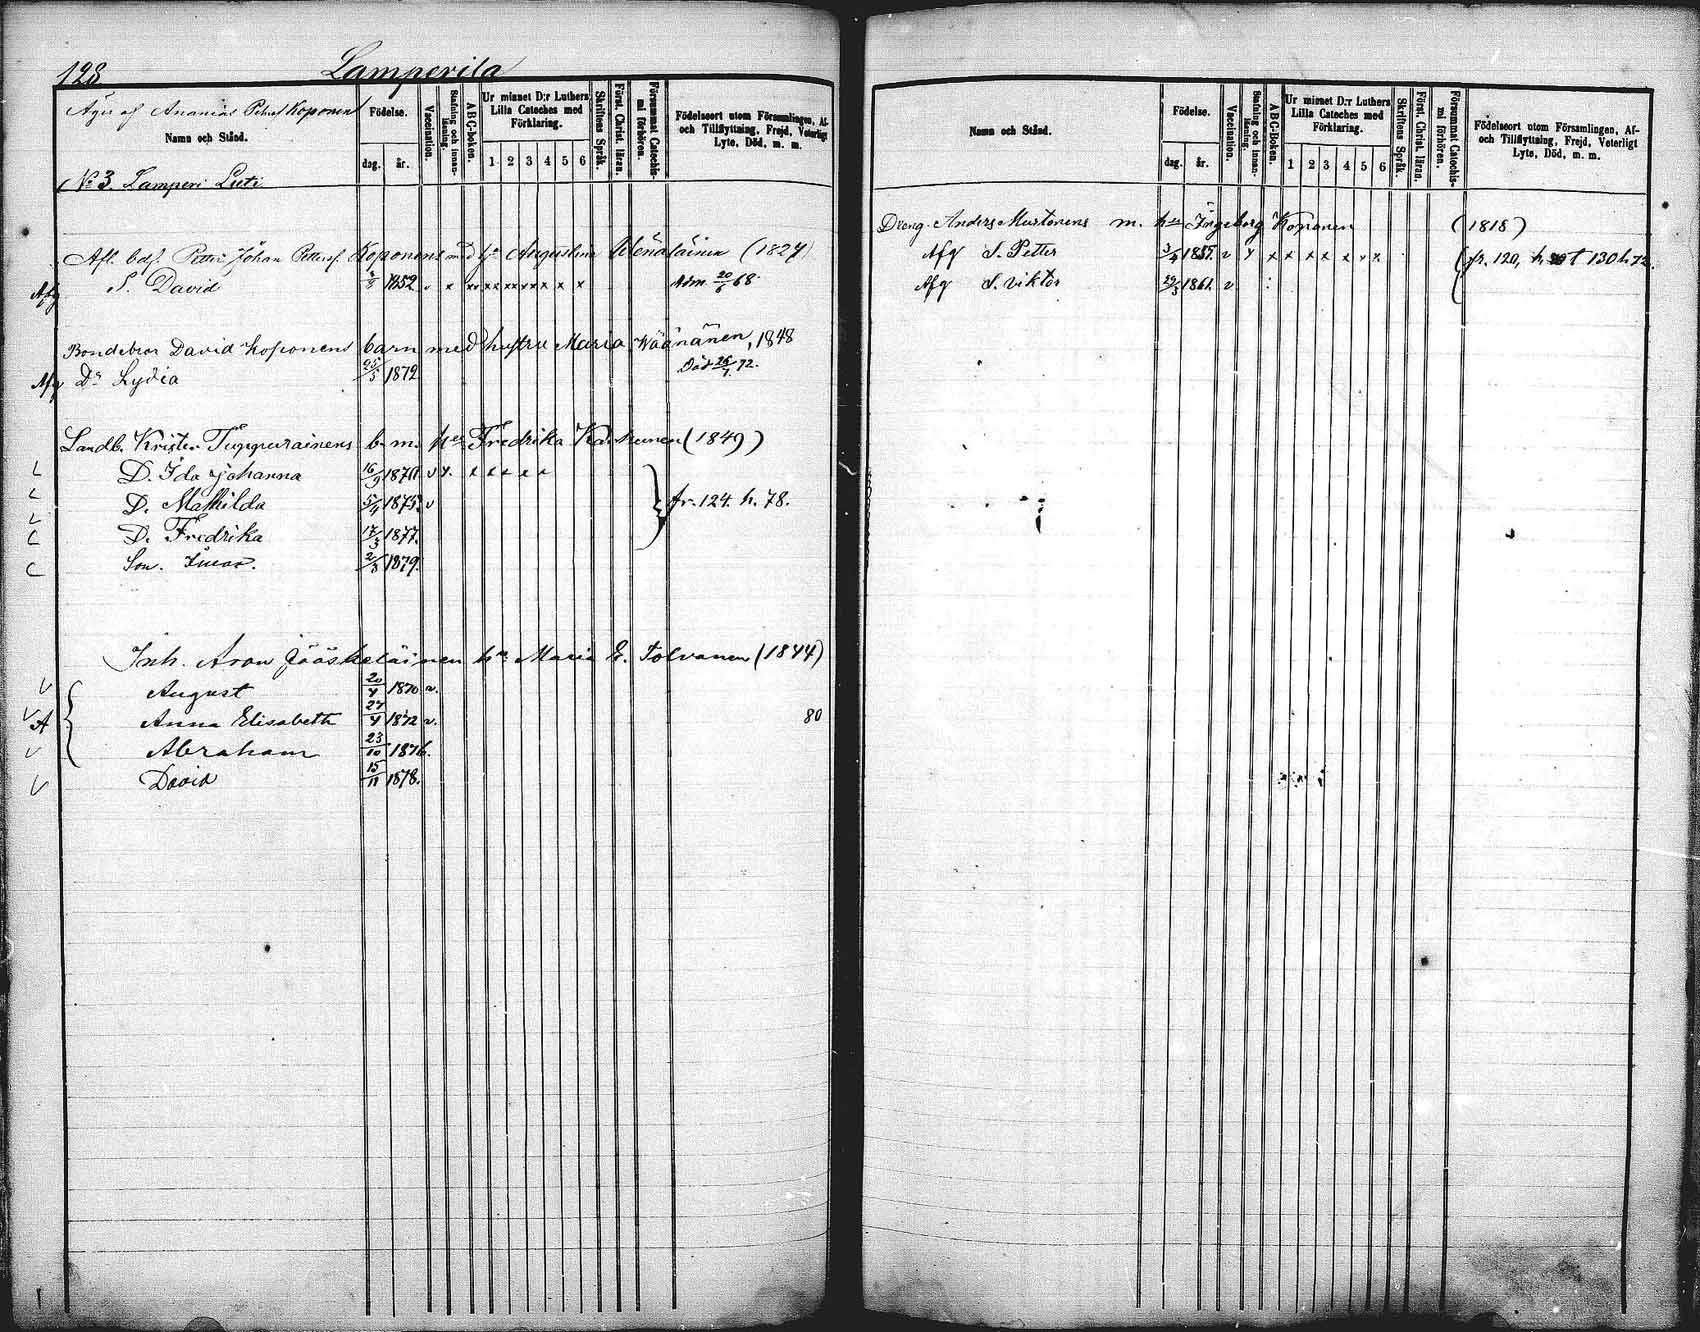 128 Lamperila
Äges af Ananias Petters. Koponen
Namn och Stånd.
Födelse.
dag. år.
Vaccination.
Stafning och innan-läsning.
ABC-boken.
Ur minnet D:r Luthers Lilla Cateches med Förklaring.
1 2 3 4 5 6
Skriftens Språk.
Först. Christ. läran.
Försummat Catechis-mi förhören.
Födelseort utom Församlingen, Af- och Tillflyttning, Frejd, Veterligt Lyte, Död, m. m.
No 3. Lamperi
Afl. bdf. Petter Johan Petterss. Koponens med h. Augustina Wenäläinen (1827)
Afg S. David 1852 v x x x x x x x x x x Adm. 20/6 68
Bondebror David Koponens barn med hustru Maria Väänänen, 1848
Afg Dr Lydia 25/5 1872 Död 26/7 72.
Landb. Krister Tuppurainens b. m. hu Fredrika Karhunen (1849)
D. Ida Johanna 16/9 1870 v v. x x x x x
D. Mathilda 5/4 1875 v fr. 124. h. 78.
D. Fredrika 17/3 1877.
Son. 2/8 1879.
Inh. Aron Jääskeläinen hu Maria E. Tolvanen (1844)
August 20/4 1870 v.
A Anna Elisabeth 27/4 1872 v. 80
Abraham 23/10 1876.
David 15/11 1878.
Namn och Stånd.
Födelse.
dag. år.
Vaccination.
Stafning och innan-läsning.
ABC-boken.
Ur minnet D:r Luthers Lilla Cateches med Förklaring.
1 2 3 4 5 6
Skriftens Språk.
Först. Christ. läran.
Försummat Catechis-mi förhören.
Födelseort utom Församlingen, Af- och Tillflyttning, Frejd, Veterligt Lyte, Död, m. m.
Dreng. Anders Mustonens m. hu Ingeborg Koponen (1818)
Afg S. Petter 1857. v v x x x x x x x fr. 120, t 130 h. 72.
Afg S. Viktor 29/3 1861. v